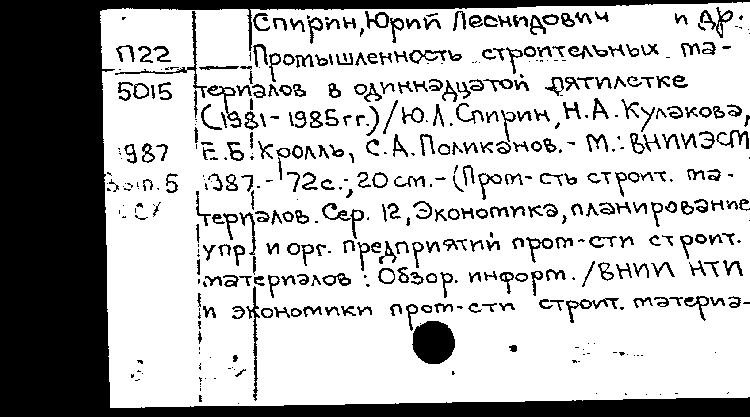 Спирин, Юрий Леонидович и др.
П22 Промышленность строительных ма-
5015 териалов в одиннадцатой пятилетке
(1981-1985гг.)/Ю.Л.Спирин, Н.А.Кулакова,
1987 Е.Б.Кролль, С.А.Поликанов.- М.: ВНИИЭСМ,
Вып.5 1987.- 72с.; 20см.-(Пром-сть строит. ма-
териалов. Сер. 12, Экономика, планирование,
упр. и орг. предприятий пром-сти строит.
материалов: Обзор. информ. /ВНИИ НТИ
и экономики пром-сти строит. материа-